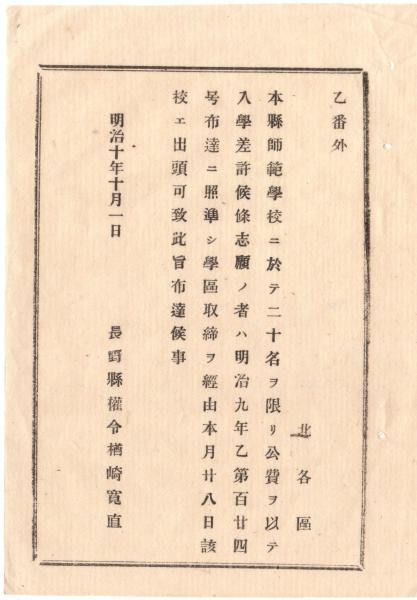 乙番外
北各區
本縣師範學校ニ於テ二十名ヲ限リ公費ヲ以テ
入學差許候條志願ノ者ハ明治九年乙第百廿四
号布達ニ照準シ學區取締ヲ經由本月廿八日該
校エ出頭可致此旨布達候事
明治十年十月一日
長野縣權令楢崎寬直